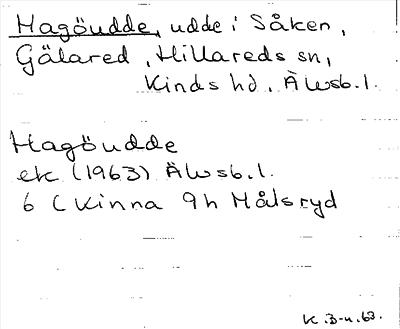 Hagöudde, udde i Såken,
Gälared, Hillareds sn,
Kinds hd, Älvsb. l.
Hagöudde
ek (1963) Älvsb. l.
6 C Kinna 9h Målsryd
K. B-n. 63.